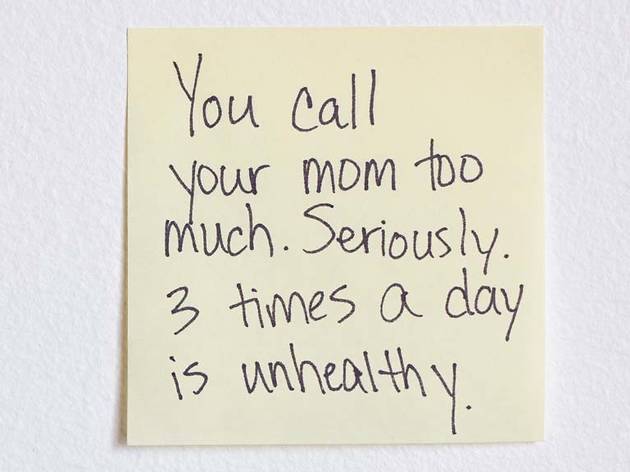 You call
your mom too
much. Seriously.
3 times a day
is unhealthy.